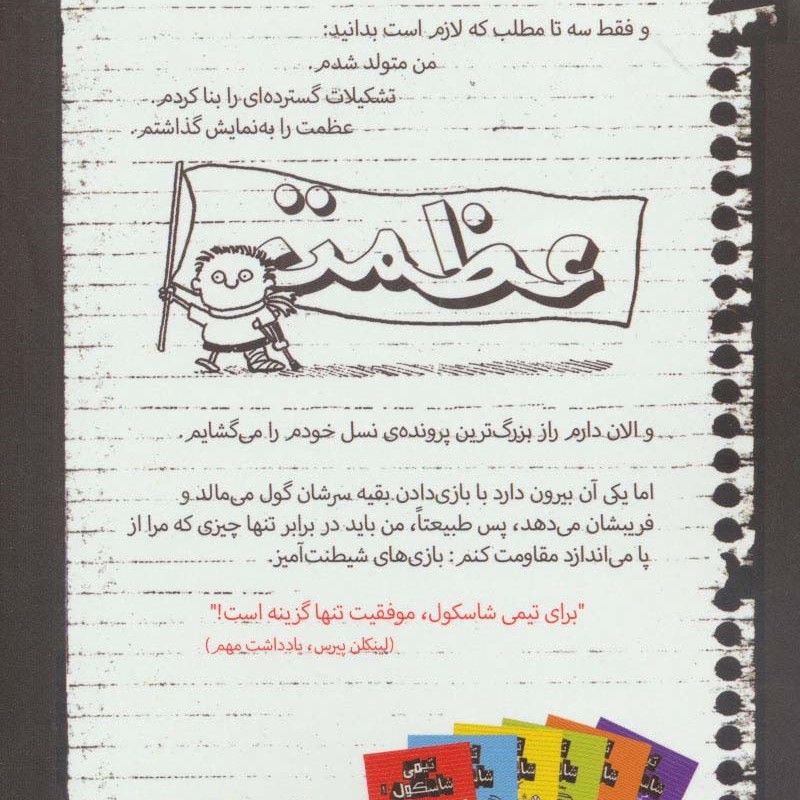 و فقط سه تا مطلب که لازم است بدانید:
من متولد شدم.
تشکیلات گسترده‌ای را بنا کردم.
عظمت را به‌نمایش گذاشتم.
عظمت
و الان دارم راز بزرگ‌ترین پرونده‌ی نسل خودم را می‌گشایم.
اما یکی آن بیرون دارد با بازی‌دادن بقیه سرشان گول می‌مالد و
فریبشان می‌دهد، پس طبیعتاً، من باید در برابر تنها چیزی که مرا از
پا می‌اندازد مقاومت کنم: بازی‌های شیطنت‌آمیز.
"برای تیمی شاسکول، موفقیت تنها گزینه است!"
(لینکلن پیرس، یادداشت مهم)
تیمی
شاسکول ۱